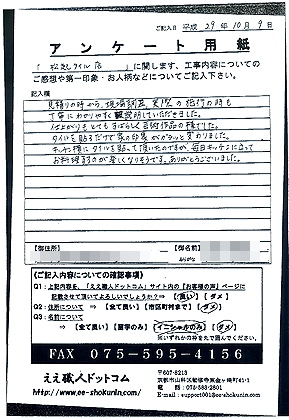 ご記入日 平成 29年 10月 9日
アンケート用紙
「 松尾タイル店 」に関します、工事内容についての
ご感想や第一印象・お人柄などについてご記入下さい。
記入欄
見積りの時から、現場調査、実際の施行の時も
丁寧にわかりやすく説明していただきました。
仕上がりもとてもすばらしく芸術作品の様でした。
タイルを貼るだけで家の印象がガラッと変わりました。
キッチン横にタイルを貼って頂いたのですが、毎日キッチンに立って
お料理するのが楽しくなりそうです。ありがとうございました。
【御住所】
【御名前】
《ご記入内容についての確認事項》
Q1：上記内容を、「ええ職人ドットコム」サイト内の【お客様の声】ページに
記載させて頂いてよろしいでしょうか？⇒ 【 良い 】 【 ダメ 】
Q2：御住所について ⇒ 【全て良い】 【市区町村まで】 【 ダメ 】
Q3：名前について
⇒ 【全て良い】 【苗字のみ】 【イニシャルのみ】 【 ダメ 】
※いずれかの枠を丸で囲んでください。
FAX 075-595-4156
ええ職人ドットコム
http://www.ee-shokunin.com/
〒607-8213
電話：075-583-2801
E-mail：support001@ee-shokunin.com